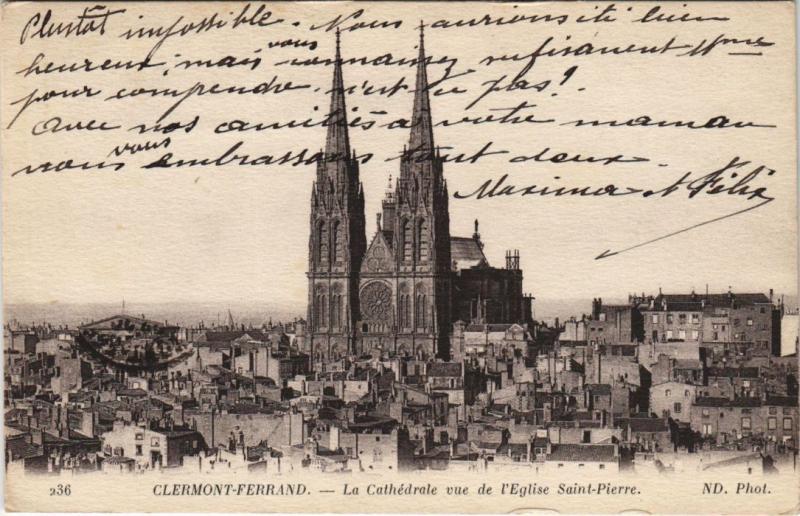 Plustôt impossible. Nous aurions été bien
heureux, mais vous connaissez
pour comprendre. n'est ce pas!
Avec nos amitiés à votre maman
nous vous embrassons tout deux.
Maxima et Félix
236 CLERMONT-FERRAND. — La Cathédrale vue de l'Eglise Saint-Pierre. ND. Phot.